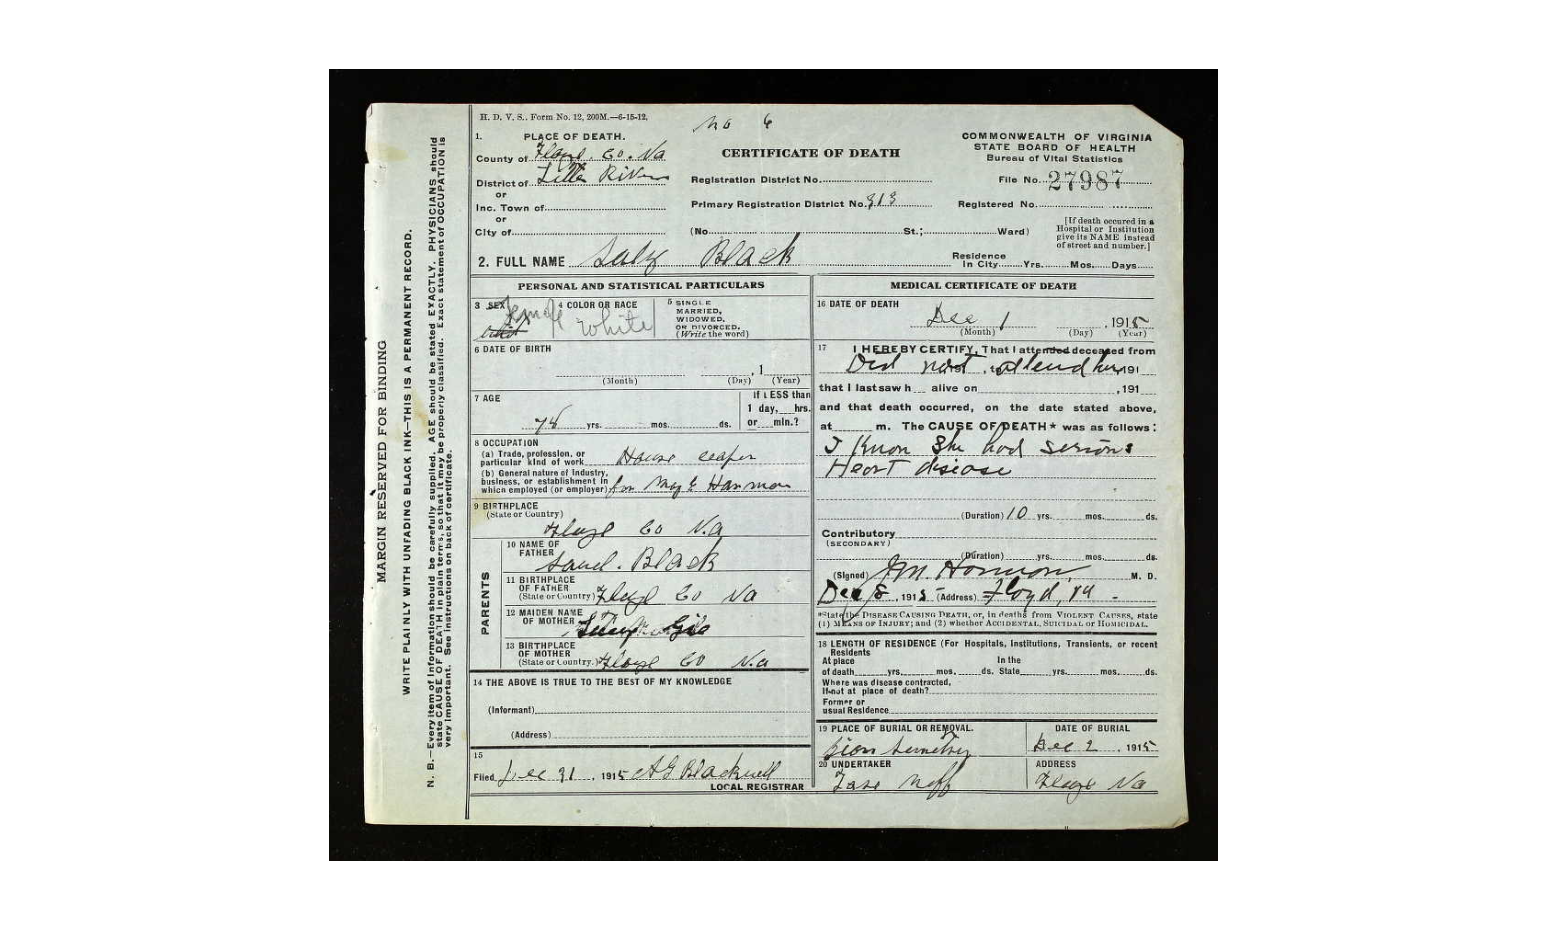 H. D. V. S., Form No. 12, 200M.—6-15-12.
No 6
1. PLACE OF DEATH.
County of Floyd. Co. Va
District of Little River
or
Inc. Town of
or
City of
CERTIFICATE OF DEATH
Registration District No.
Primary Registration District No. 313
(No. St.; Ward)
COMMONWEALTH OF VIRGINIA
STATE BOARD OF HEALTH
Bureau of Vital Statistics
File No. 27987
Registered No.
[If death occured in a
Hospital or Institution
give its NAME instead
of street and number.]
2. FULL NAME Black
Residence
In City Yrs. Mos. Days
PERSONAL AND STATISTICAL PARTICULARS
3 SEX Female
4 COLOR OR RACE
White
5 SINGLE
MARRIED,
WIDOWED.
OR DIVORCED.
(Write the word)
6 DATE OF BIRTH
, 1
(Month) (Day) (Year)
7 AGE
78 yrs. mos. ds.
If LESS than
1 day, hrs.
or min.?
8 OCCUPATION
(a) Trade, profession, or
particular kind of work House ceaper
(b) General nature of industry,
business, or establishment in
which employed (or employer) for Harmon
9 BIRTHPLACE
(State or Country)
Floyd Co Va
PARENTS
10 NAME OF
FATHER
Black
11 BIRTHPLACE
OF FATHER
(State or Country) Floyd Co Va
12 MAIDEN NAME
OF MOTHER
13 BIRTHPLACE
OF MOTHER
(State or Country. Floyd Co Va
14 THE ABOVE IS TRUE TO THE BEST OF MY KNOWLEDGE
(Informant)
(Address)
15
Filed Dec 31, 1915 A G Blackwell
LOCAL REGISTRAR
MEDICAL CERTIFICATE OF DEATH
16 DATE OF DEATH
Dec 1, 1915
(Month) (Day) (Year)
17 I HEREBY CERTIFY, That I attended deceased from
Did not attend her, 191
that I last saw h alive on , 191
and that death occurred, on the date stated above,
at m. The CAUSE OF DEATH* was as follows:
I know she had serious
Heart disease
(Duration) 10 yrs. mos. ds.
Contributory
(SECONDARY)
(Duration) yrs. mos. ds.
(Signed) J M. Harmon M. D.
Dec 8, 1915 (Address) Floyd, Va.
*State the DISEASE CAUSING DEATH, or, in deaths from VIOLENT CAUSES, state
(1) MEANS OF INJURY; and (2) whether ACCIDENTAL, SUICIDAL or HOMICIDAL.
18 LENGTH OF RESIDENCE (For Hospitals, Institutions, Transients, or recent
Residents
At place In the
of death yrs. mos. ds. State yrs. mos. ds.
Where was disease contracted,
If not at place of death?
Former or
usual Residence
19 PLACE OF BURIAL OR REMOVAL.
Zion
DATE OF BURIAL
Dec 2, 1915
20 UNDERTAKER
ADDRESS
Floyd Va
MARGIN RESERVED FOR BINDING
WRITE PLAINLY WITH UNFADING BLACK INK—THIS IS A PERMANENT RECORD.
N. B.—Every item of information should be carefully supplied. AGE should be stated EXACTLY. PHYSICIANS should
state CAUSE OF DEATH in plain terms, so that it may be properly classified. Exact statement of OCCUPATION is
very important. See instructions on back of certificate.